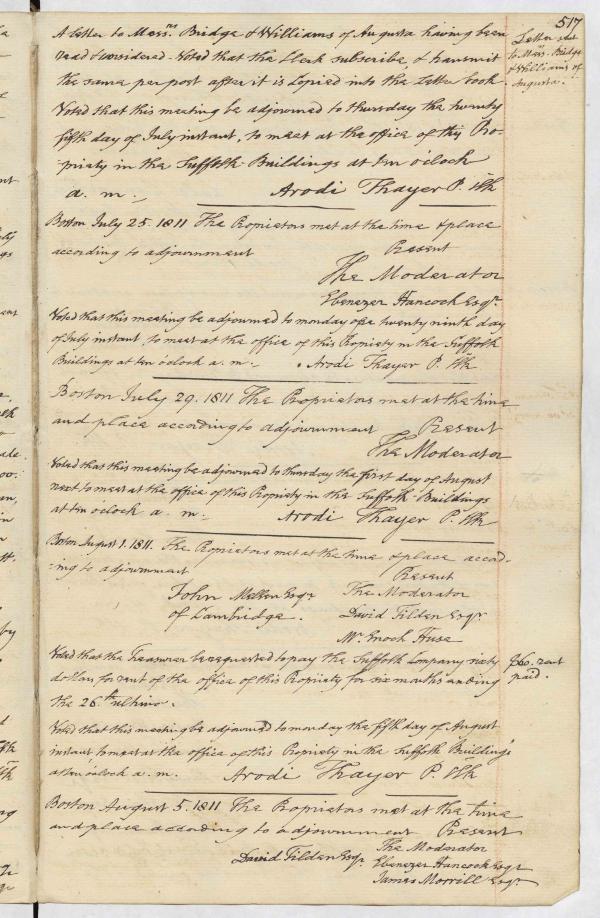 517
A letter to Mess.rs Bridge & Williams of Augusta having been
read & considered. Voted that the Clerk subscribe, & transmit
the same per post after it is Copied into the Letter book
Letter sent
to Mess. Bridge
& Williams of
Augusta.
Voted that this meeting be adjourned to thursday the twenty
fifth day of July instant, to meet at the office of this Pro-
priety in the Suffolk Buildings at ten o'clock
a. m. Arodi Thayer P. Clk
Boston July 25. 1811 The Proprietors met at the time & place
according to adjournment Present
The Moderator
Ebenezer Hancock Esqr
Voted that this meeting be adjourned to monday the twenty ninth day
of July instant, to meet at the office of this Propriety in the Suffolk
Buildings at ten o'clock a. m. Arodi Thayer P. Clk
Boston July 29. 1811 The Proprietors met at the time
and place according to adjournment Present
The Moderator
Voted that this meeting be adjourned to thursday the first day of August
next to meet at the office of this Propriety in the Suffolk Buildings
at ten o'clock a. m. Arodi Thayer P. Clk
Boston August 1. 1811. The Proprietors met at the time & place accord-
ing to adjournment Present
John Mellen Esqr The Moderator
of Cambridge. David Tilden Esqr
Mr. Enoch Huse
Voted that the Treasurer be requested to pay the Suffolk Company sixty
dollars, for rent of the office of this Propriety for six months ending
the 26th ultimo.
$60. rent
paid.
Voted that this meeting be adjourned to monday the fifth day of August
instant to meet at the office of this Propriety in the Suffolk Buildings
at ten o'clock a. m. Arodi Thayer P. Clk
Boston August 5. 1811 The Proprietors met at the time
and place according to adjournment Present
The Moderator
David Tilden Esqr. Ebenezer Hancock Esqr
James Morrill Esqr